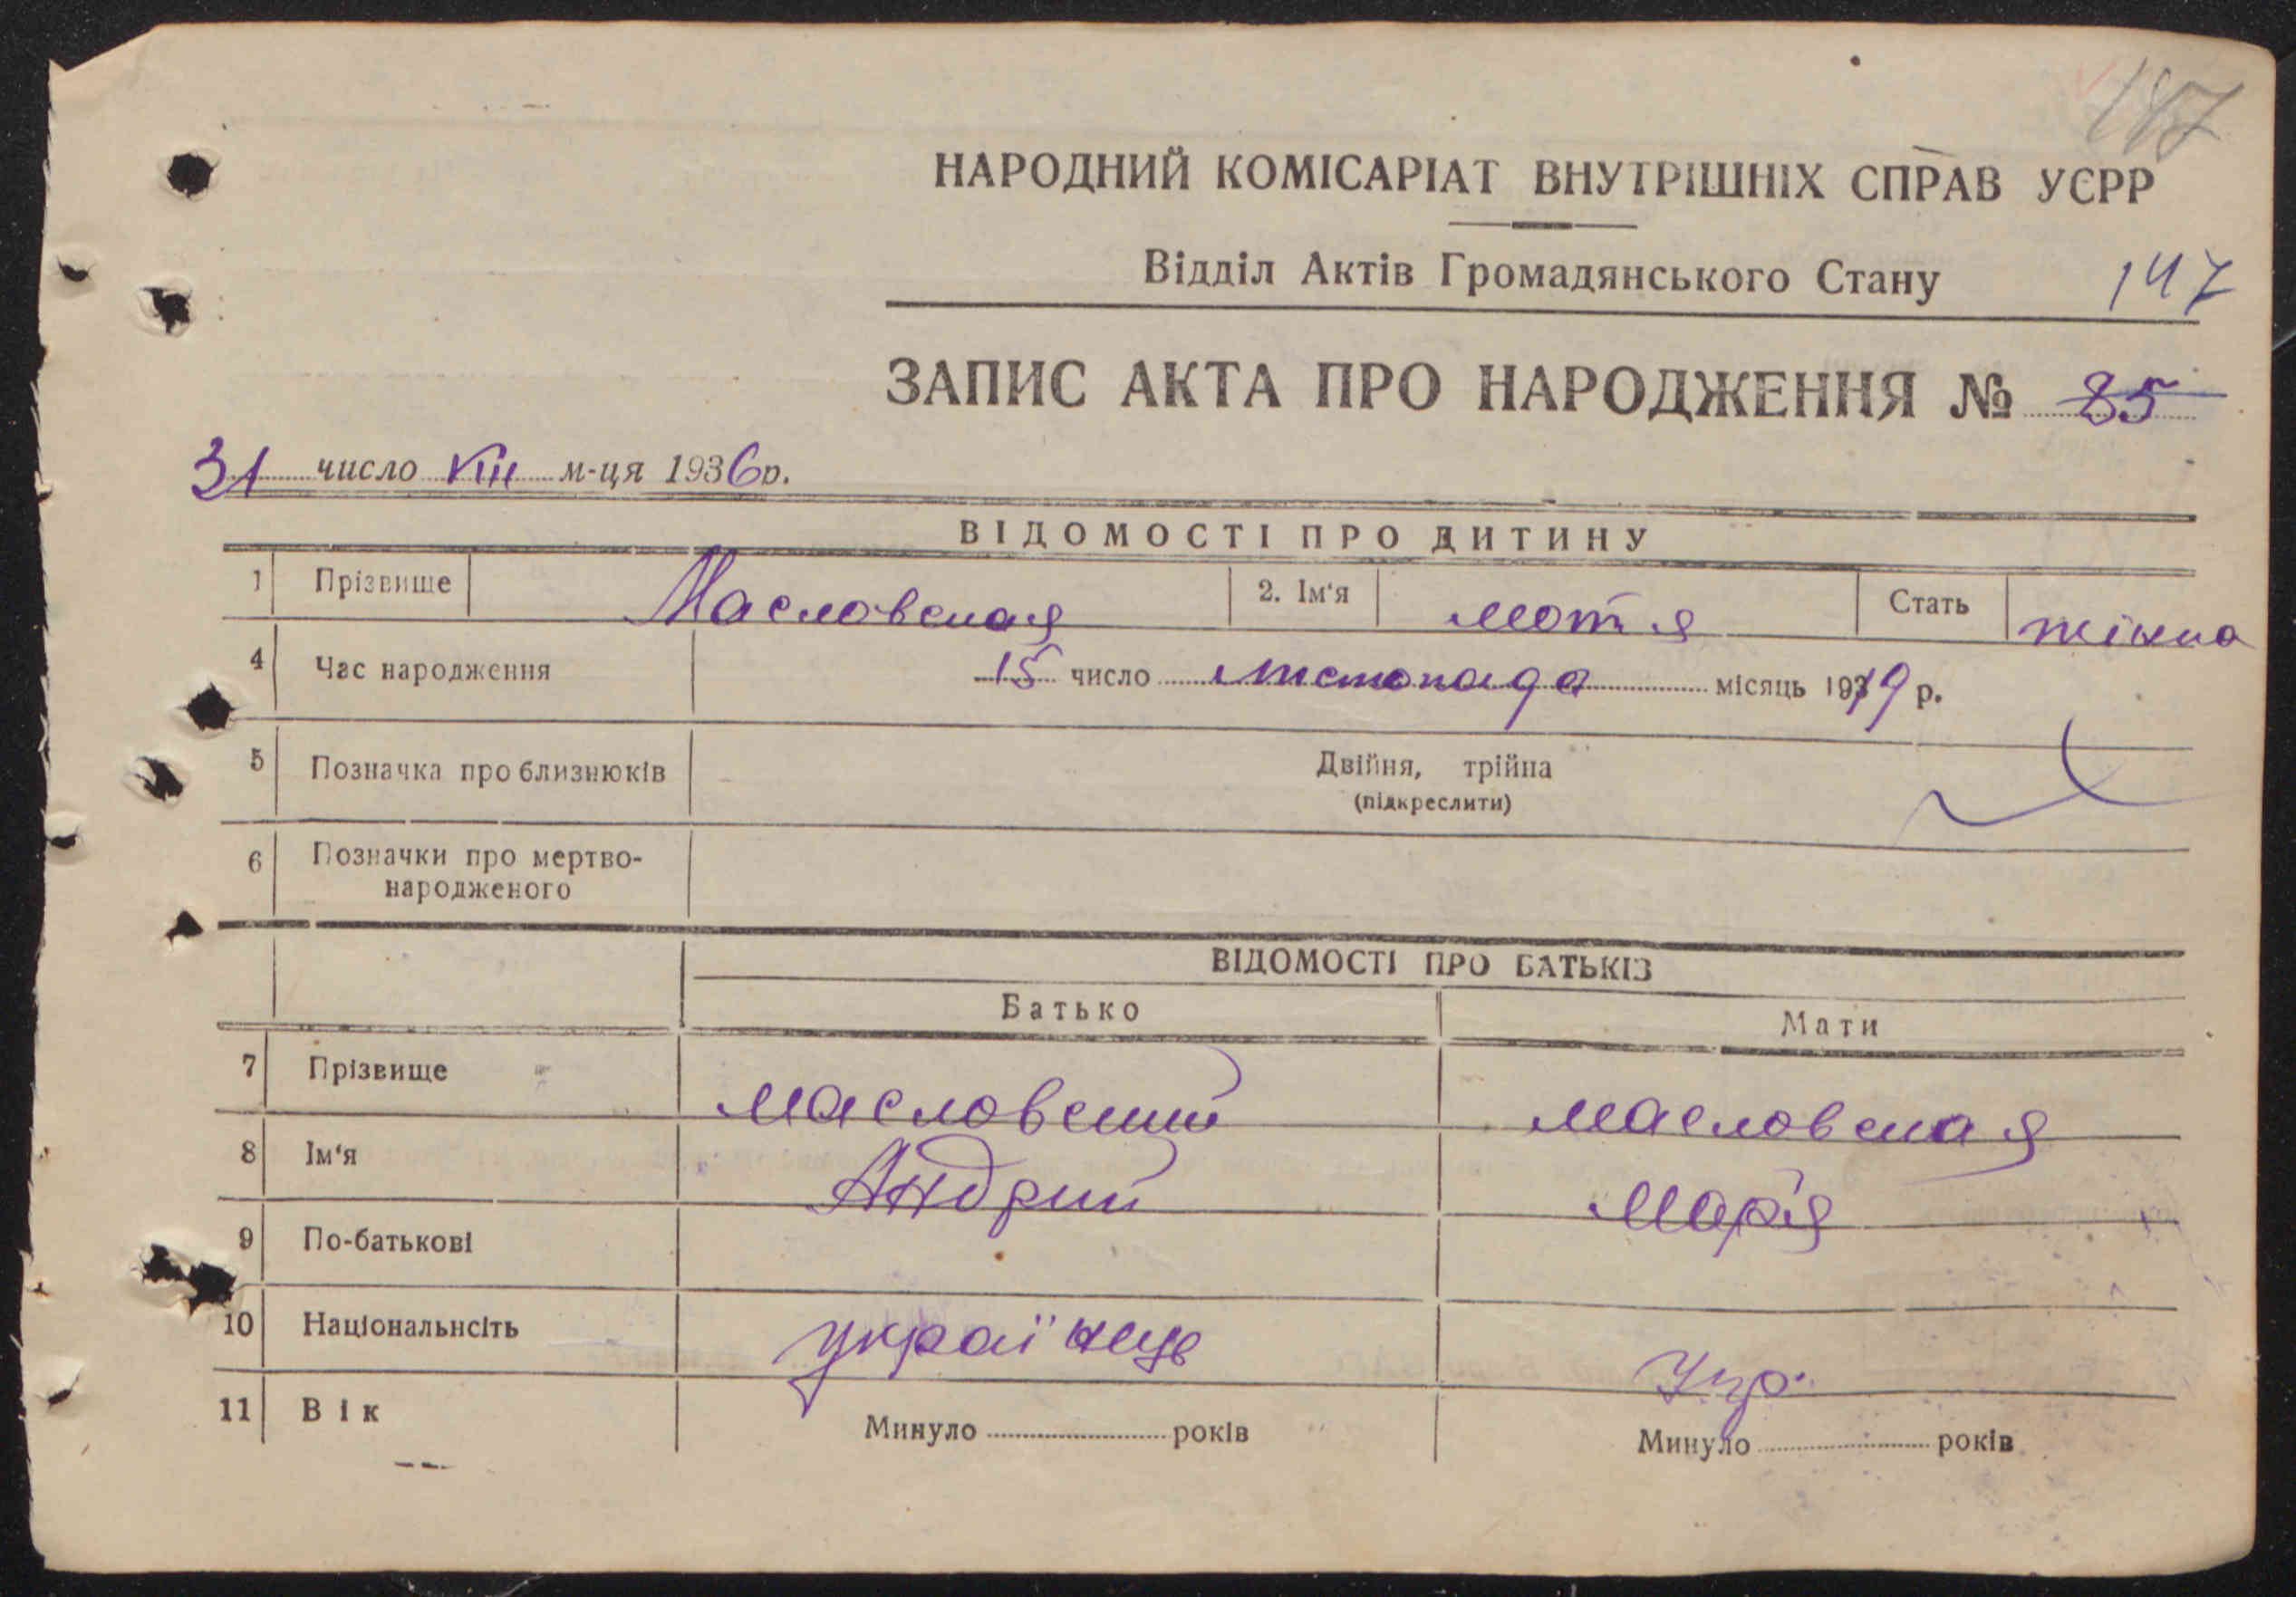 147
НАРОДНИЙ КОМІСАРІАТ ВНУТРІШНІХ СПРАВ УСРР
Відділ Актів Громадянського Стану 147
ЗАПИС АКТА ПРО НАРОДЖЕННЯ № 85
31 число VIII м-ця 1936р.
ВІДОМОСТІ ПРО ДИТИНУ
1 Прізвище Масловская 2. Ім'я Мотя Стать жінка
4 Час народження 15 число листопада місяць 1919 р.
5 Позначка про близнюків Двійня, трійна
(підкреслити)
6 Позначки про мертво-
народженого
ВІДОМОСТІ ПРО БАТЬКІВ
Батько Мати
7 Прізвище Масловский Масловская
8 Ім'я Андрий Марія
9 По-батькові
10 Національнсіть українць Укр.
11 Вік Минуло років Минуло років